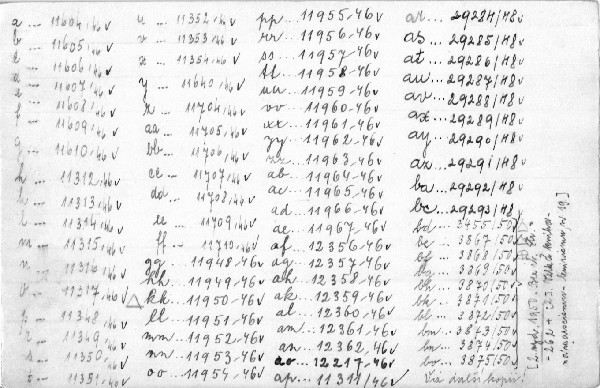 a ... 11604/46 v
b ... 11605/46 v
c ... 11606/46 v
d ... 11607/46 v
e ... 11608/46 v
f ... 11609/46 v
g ... 11610/46 v
h ... 11312/46 v
11313/46 v
l ... 11314/46 v
m ... 11315/46 v
n ... 11316/46 v
o ... 11317/46 v
11348/46 v
r ... 11349/46 v
s ... 11350/46 v
t ... 11351/46 v
u ... 11352/46 v
v ... 11353/46 v
x ... 11354/46 v
y ... 11640/46 v
z ... 11704/46 v
aa ... 11705/46 v
bb ... 11706/46 v
cc ... 11707/46 v
dd ... 11708/46 v
ee ... 11709/46 v
ff ... 11710/46 v
gg ... 11948/46 v
hh ... 11949-46 v
kk ... 11950-46 v
ll ... 11951-46 v
mm ... 11952-46 v
nn ... 11953-46 v
oo ... 11954-46 v
pp ... 11955-46 v
rr ... 11956-46 v
ss ... 11957-46 v
tt ... 11958-46 v
uu ... 11959-46 v
vv ... 11960-46 v
xx ... 11961-46 v
yy ... 11962-46 v
zz ... 11963-46 v
ab ... 11964-46 v
ac ... 11965-46 v
ad ... 11966-46 v
ae ... 11967-46 v
af ... 12356-46 v
ag ... 12357-46 v
ah ... 12358-46 v
ak ... 12359-46 v
al ... 12360-46 v
am ... 12361-46 v
an ... 12362-46 v
ao ... 12217-46 v
ap ... 11311/46 v
ar ... 29284/48 v
as ... 29285/48 v
at ... 29286/48 v
au ... 29287/48 v
av ... 29288/48 v
ax ... 29289/48 v
ay ... 29290/48 v
az ... 29291/48 v
ba ... 29292/48 v
bc ... 29293/48 v
bd ... 3455/50
be ... 3867/50
bf ... 3868/50
bg ... 3869/50
bh ... 3870/50
bk ... 3871/50
bl ... 3872/50
bm ... 3873/50
bn ... 3874/50
bo ... 3875/50
Viz další kopii!